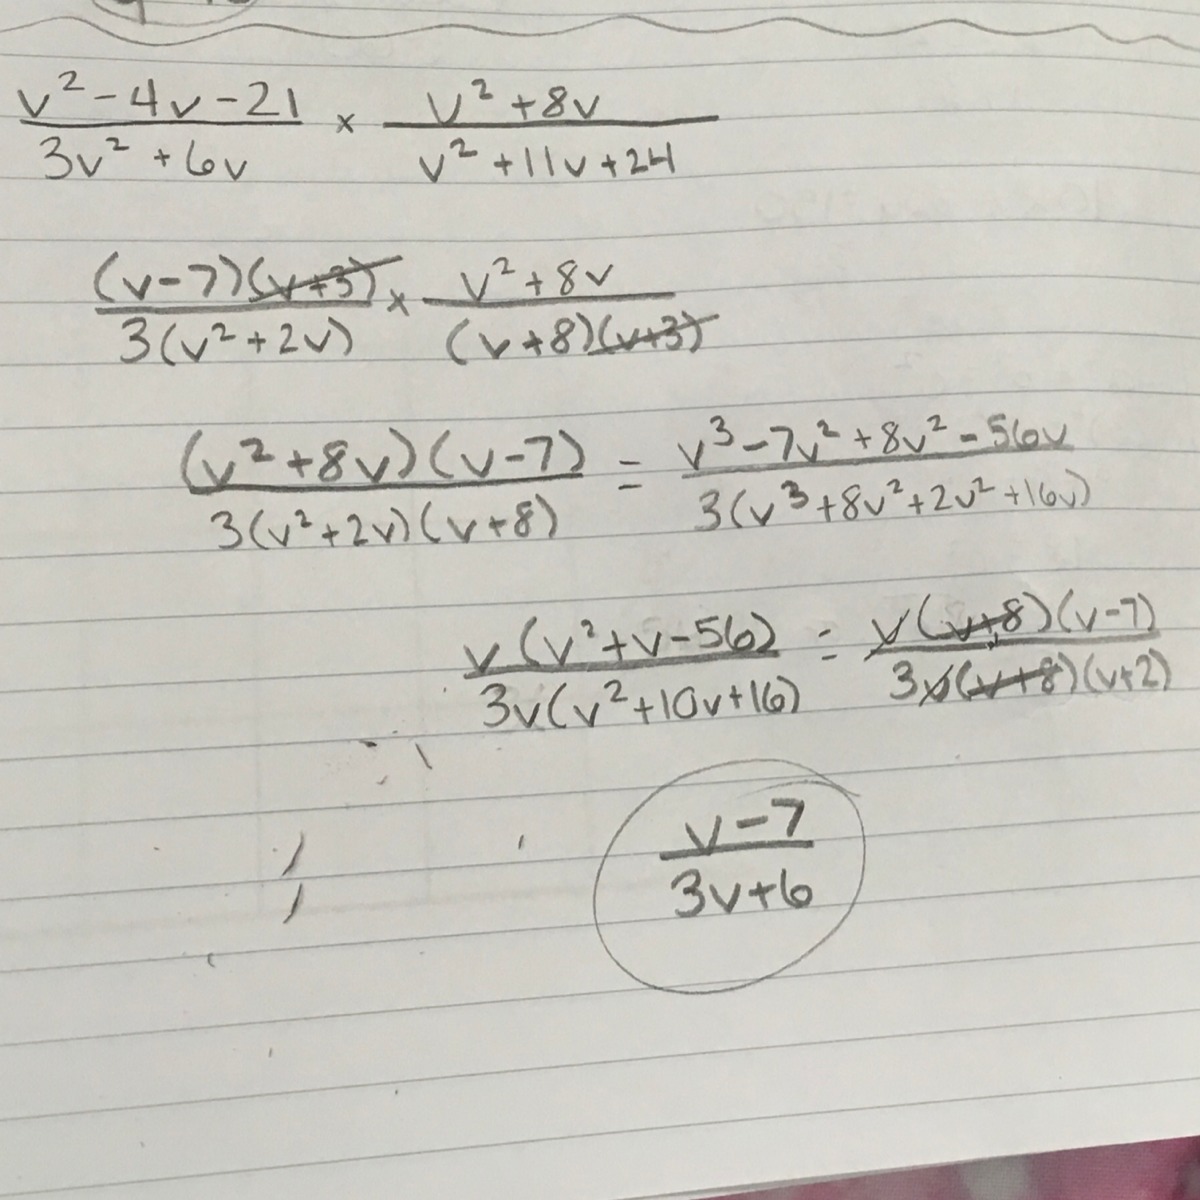 v² - 4v - 21 / 3v² + 6v × v² + 8v / v² + 11v + 24
(v-7)(v+3) / 3(v² + 2v) × v² + 8v / (v+8)(v+3)
(v² + 8v)(v-7) / 3(v² + 2v)(v+8) = v³ - 7v² + 8v² - 56v / 3(v³ + 8v² + 2v² + 16v)
v(v² + v - 56) / 3v(v² + 10v + 16) = v(v+8)(v-7) / 3v(v+8)(v+2)
v - 7 / 3v + 6